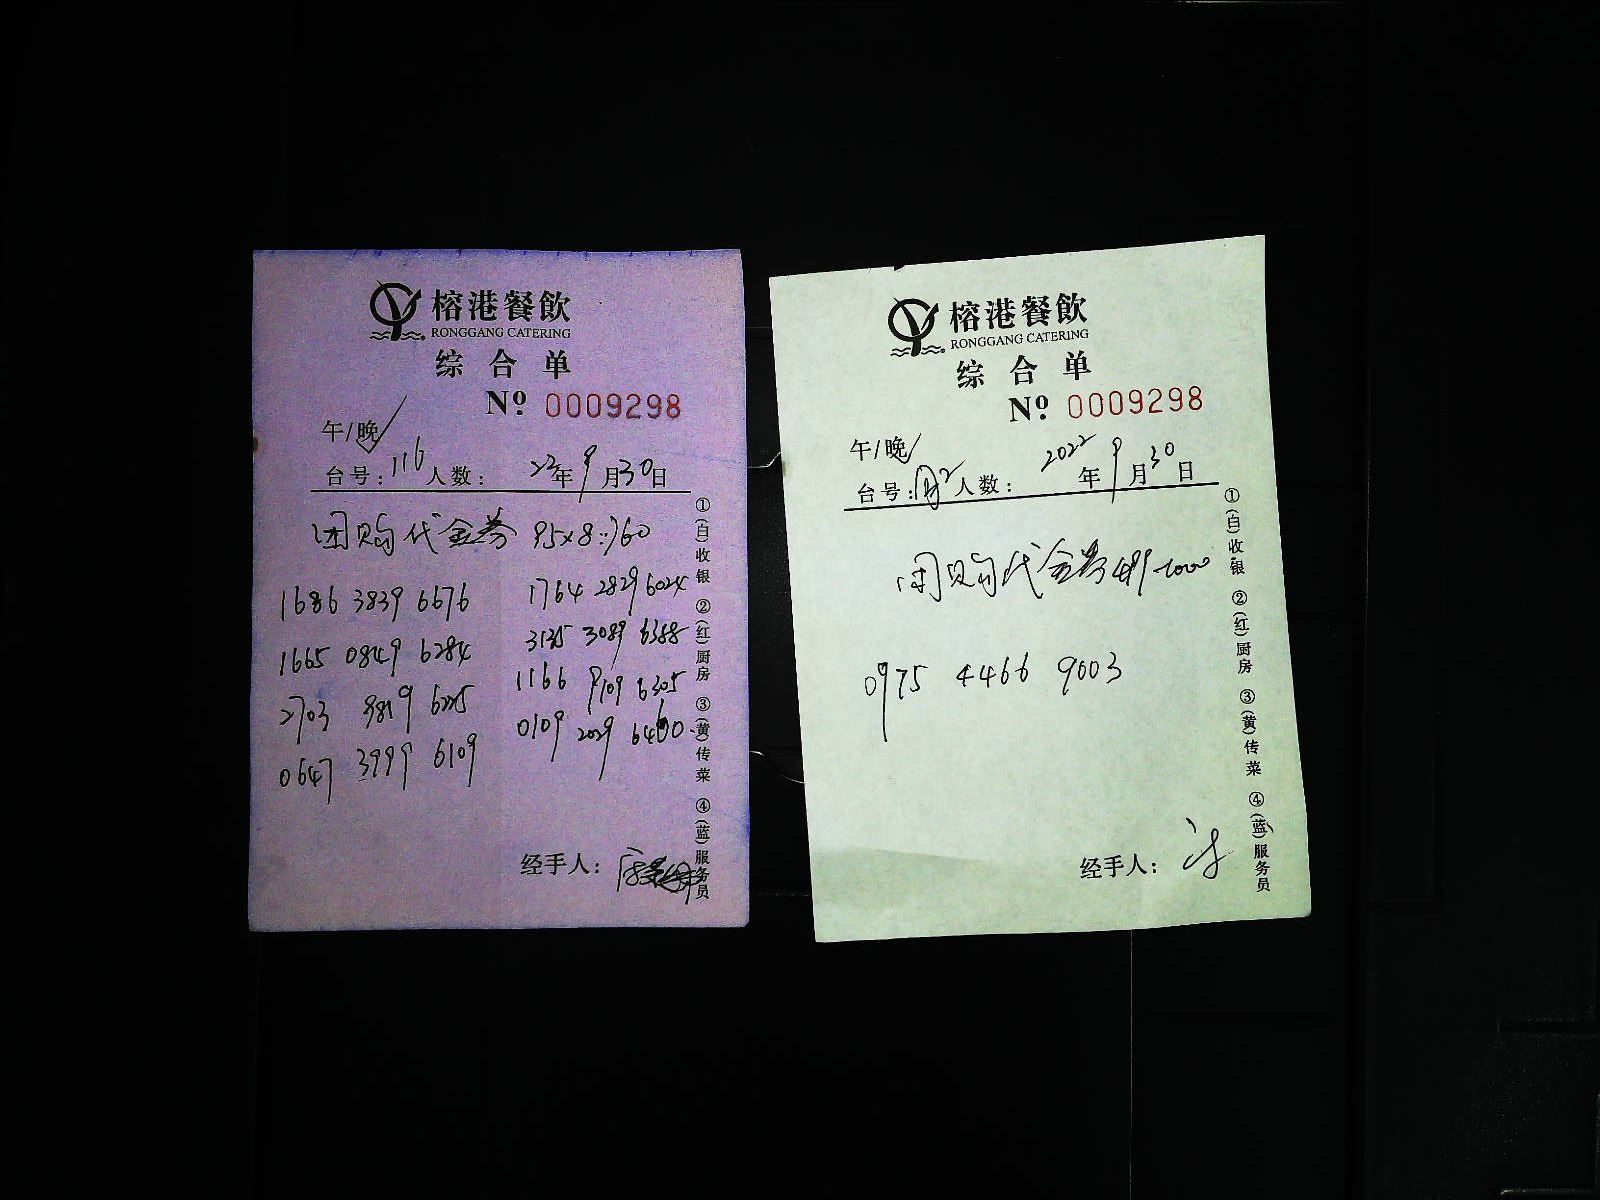 榕港餐飲
RONGGANG CATERING
综合单
Nº 0009298
午/晚
台号: 116 人数: 22年 9月30日
团购代金券 95×8=760
1686 3839 6676
1764 2829 6024
1665 0849 6284
3135 3089 6388
2703 9819 6225
1166 9109 6305
0647 3999 6109
0109 2029 6460
经手人:
①(白)收银 ②(红)厨房 ③(黄)传菜 ④(蓝)服务员
榕港餐飲
RONGGANG CATERING
综合单
Nº 0009298
午/晚
台号: 人数: 2022年 9月30日
团购代金券 1000
0975 4466 9003
经手人:
①(白)收银 ②(红)厨房 ③(黄)传菜 ④(蓝)服务员